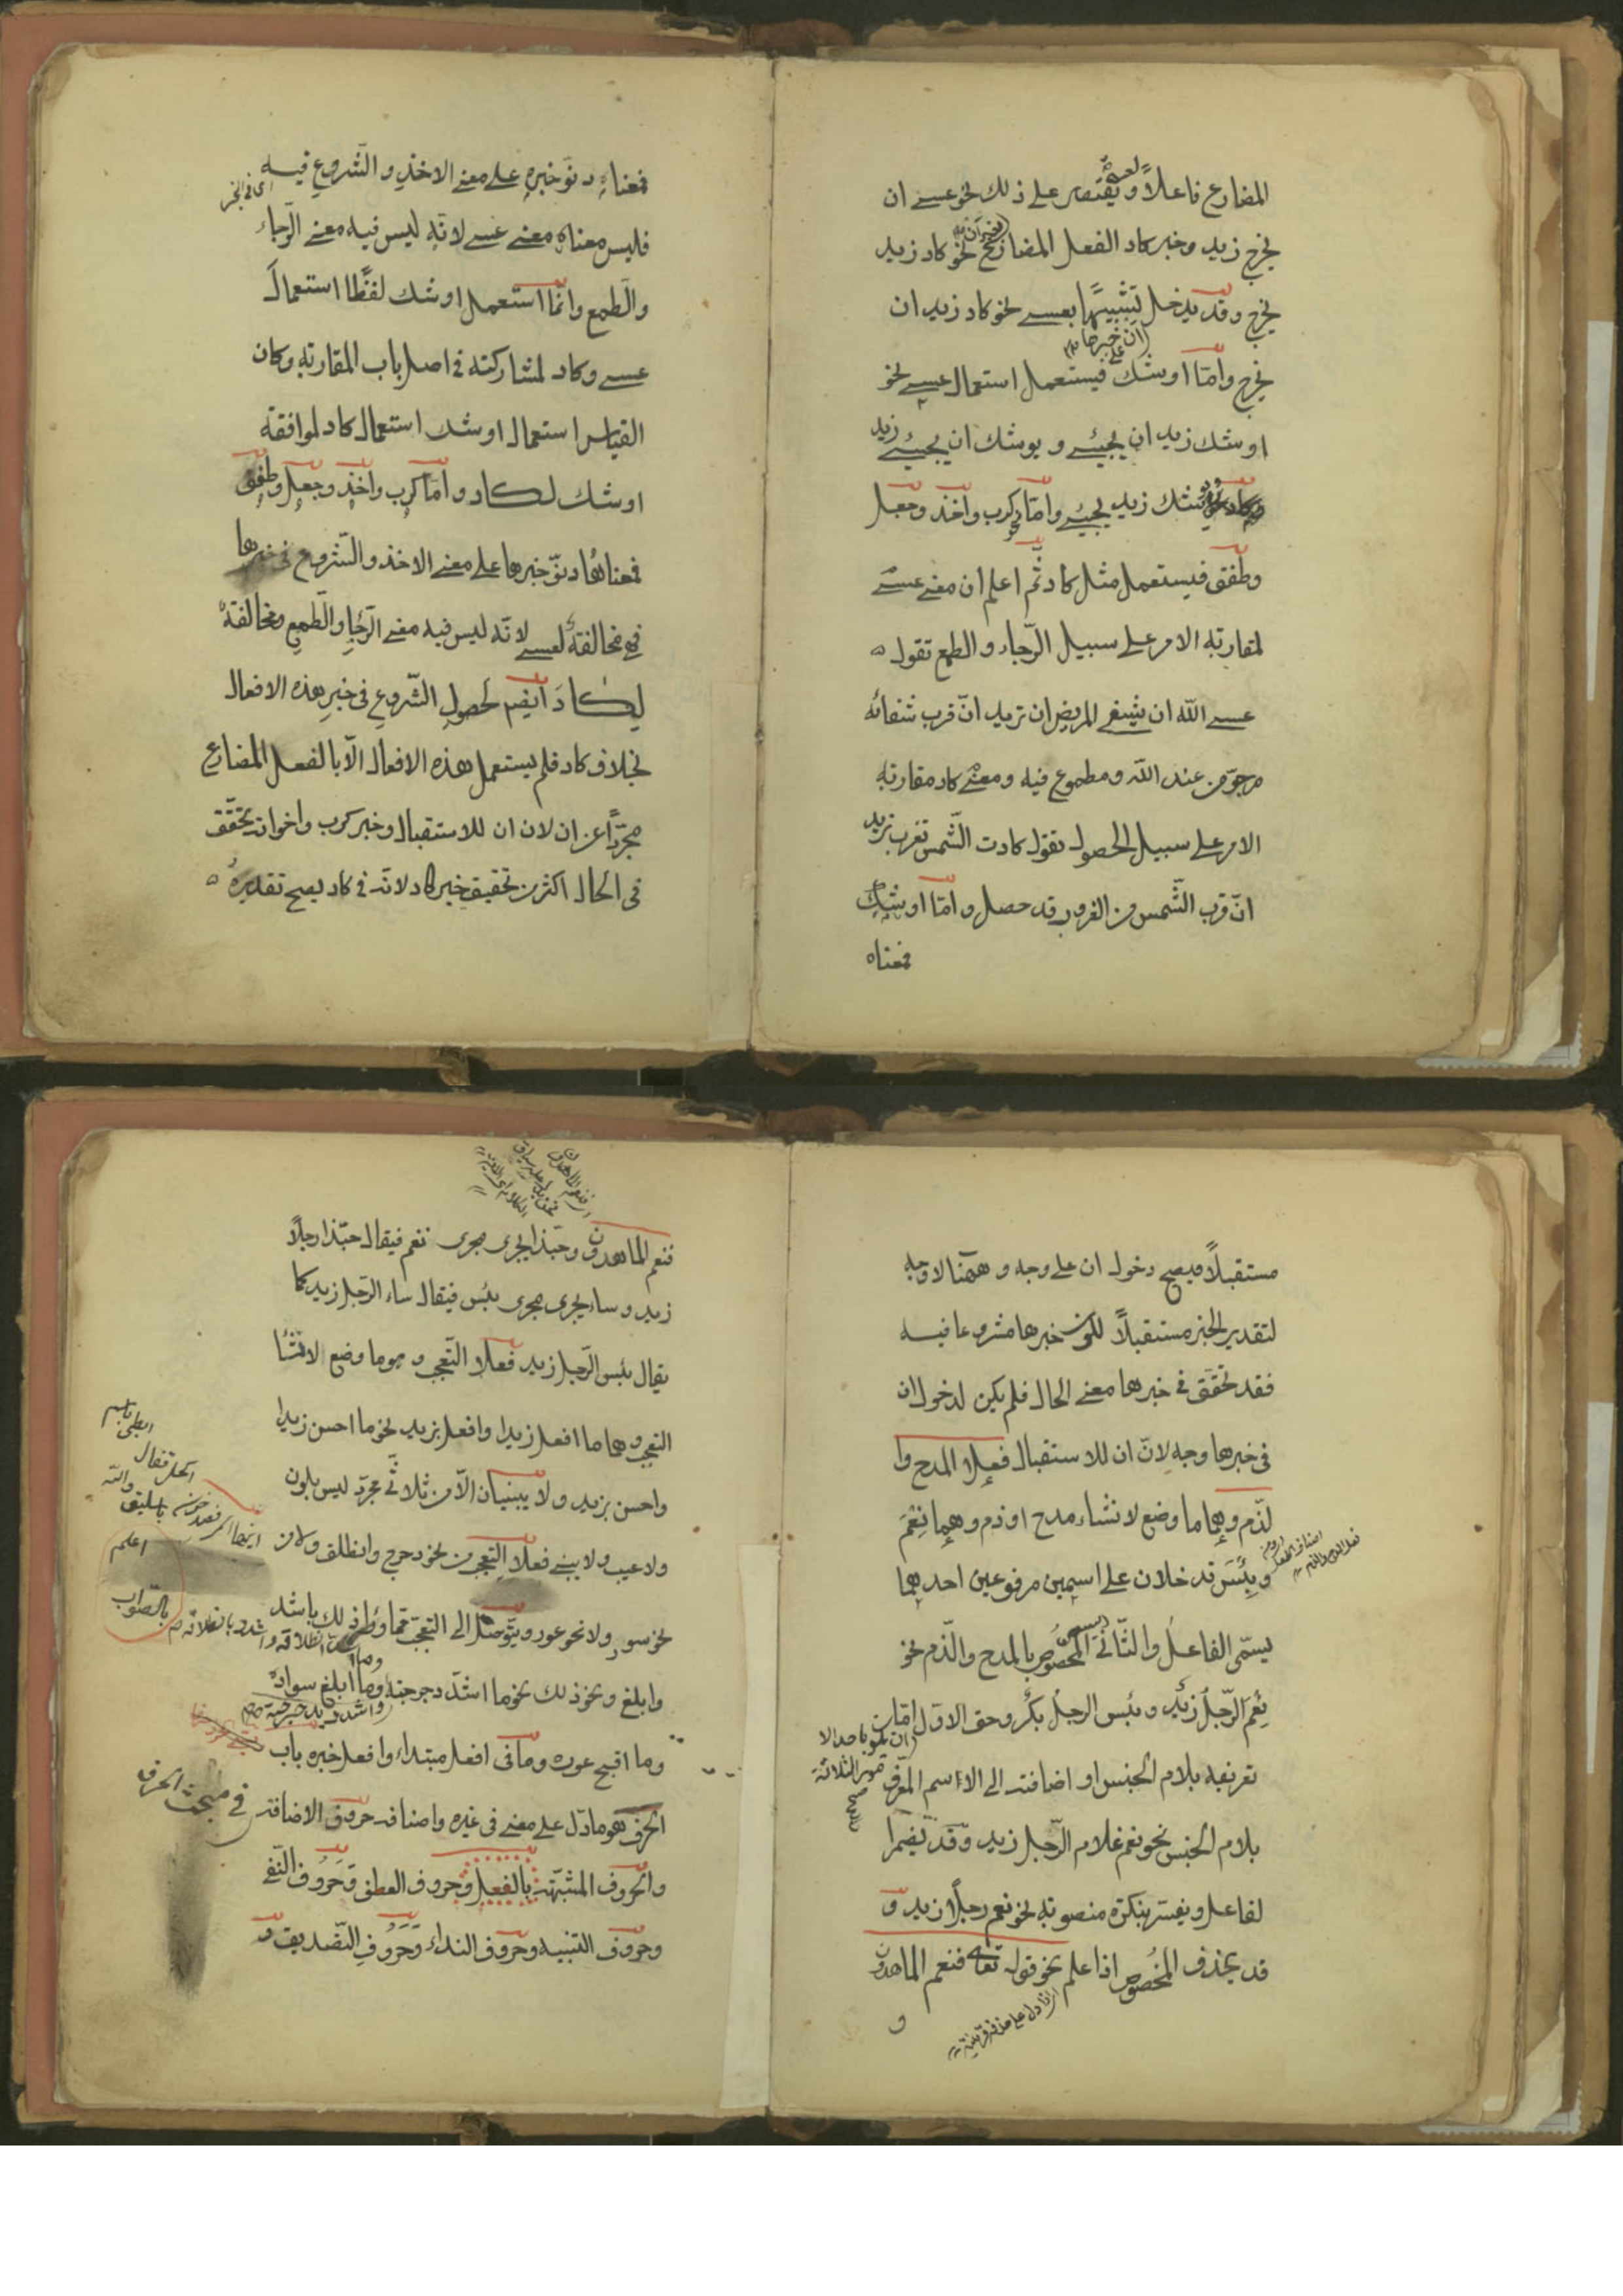 المضارع فاعلاً ويقتصر على ذلك نحو عسى ان
يخرج زيد وخبر كاد الفعل المضارع نحو كاد زيد
يخرج وقد يدخل تشبيهًا بعسى نحو كاد زيد ان
يخرج وامّا اوشك فيستعمل استعمال عسى نحو
اوشك زيد ان يجيئ ويوشك ان يجيئ زيد
يوشك زيد يجيئ وامّا كرب واخذ وجعل
وطفق فيستعمل مثل كاد ثم اعلم ان معنى عسى
لمقاربة الامر على سبيل الرّجاء والطمع تقول
عسى اللّه ان يشفي المريض ان تريد انّ قرب شفائه
مرجوّ من عند اللّه ومطموع فيه ومعنى كاد مقاربة
الامر على سبيل الحصول تقول كادت الشّمس تغرب تريد
انّ قرب الشّمس من الغروب قد حصل وامّا اوشك
فمعناه
فمعناه دنوّ خبره على معنى الاخذ والشّروع فيه
اى فى الخبر
فليس معناه معنى عسى لانّه ليس فيه معنى الرّجاء
والطّمع وانّما استعمل اوشك لفظًا استعمال
عسى وكاد لمشاركته فى اصل باب المقاربة وكان
القياس استعمال اوشك استعمال كاد لموافقة
اوشك لكاد وامّا كرب واخذ وجعل وطفق
فمعناها دنوّ خبرها على معنى الاخذ والشّروع فى خبرها
فهى مخالفة لعسى لانّه ليس فيه معنى الرّجاء والطّمع ومخالفة
لكاد ايضًا لحصول الشّروع فى خبر هذه الافعال
بخلاف كاد فلم يستعمل هذه الافعال الّا بالفعل المضارع
مجرّدًا عن ان لان ان للاستقبال وخبر كرب واخواته تحقّق
فى الحال اكثر من تحقيق خبر كاد لانّه فى كاد يصح تقديره
مستقبلاً فيصح دخول ان على وجه وههنا لا وجه
لتقدير الخبر مستقبلاً لكون خبرها مشروعا فيه
فقد تحقّق فى خبرها معنى الحال فلم يكن لدخول ان
فى خبرها وجه لانّ ان للاستقبال فعلا المدح وا
لذّم وهما ما وضع لانشاء مدح او ذم وهما نِعْمَ
وبِئْسَ تدخلان على اسمين مرفوعين احديهما
يسمّى الفاعل والثّانى المخصوص بالمدح والذّم نحو
نِعْمَ الرّجلُ زيدٌ وبئس الرجل بكرٌ وحق الاوّل امّا
تعريفه بلام الجنس او اضافته الى الاسم المعرّف
بلام الجنس نحو نعم غلام الرّجل زيد وقد يضمر ا
لفاعل ويفسّر بنكرة منصوبة نحو نعم رجلاً زيد و
قد يحذف المخصوص اذا علم نحو قوله تعالى فنعم الماهدون
و
فنعم الماهدون وحبّذا يجرى مجرى نعم فيقال حبّذا رجلاً
زيد وساء يجرى مجرى بئس فيقال ساء الرّجل زيد كما
يقال بئس الرّجل زيد فعلا التّعجب وهو ما وضع لانشا
التعجب وهما ما افعل زيدا وافعل بزيد نحو ما احسن زيدا
واحسن بزيد ولا يبنيان الّا من ثلاثى مجرّد ليس بلون
ولا عيب ولا يبنى فعلا التعجب من نحو دحرج وانطلق ولا من
نحو سود ولا نحو عور ويتوصّل الى التعجب
وابلغ ونحو ذلك نحو ما اشدّ دحرجته وما ابلغ سواده
وما اقبح عوره وما فى افعل مبتداء وافعل خبره باب
الحرف هو ما دلّ على معنى فى غيره واصنافه حروف الاضافة
فى مبحث الحرف
والحروف المشبّهة بالفعل وحروف العطف وحروف النّفى
وحروف التنبيه وحروف النداء وحروف التّصديق و
اعلم
بالصّواب